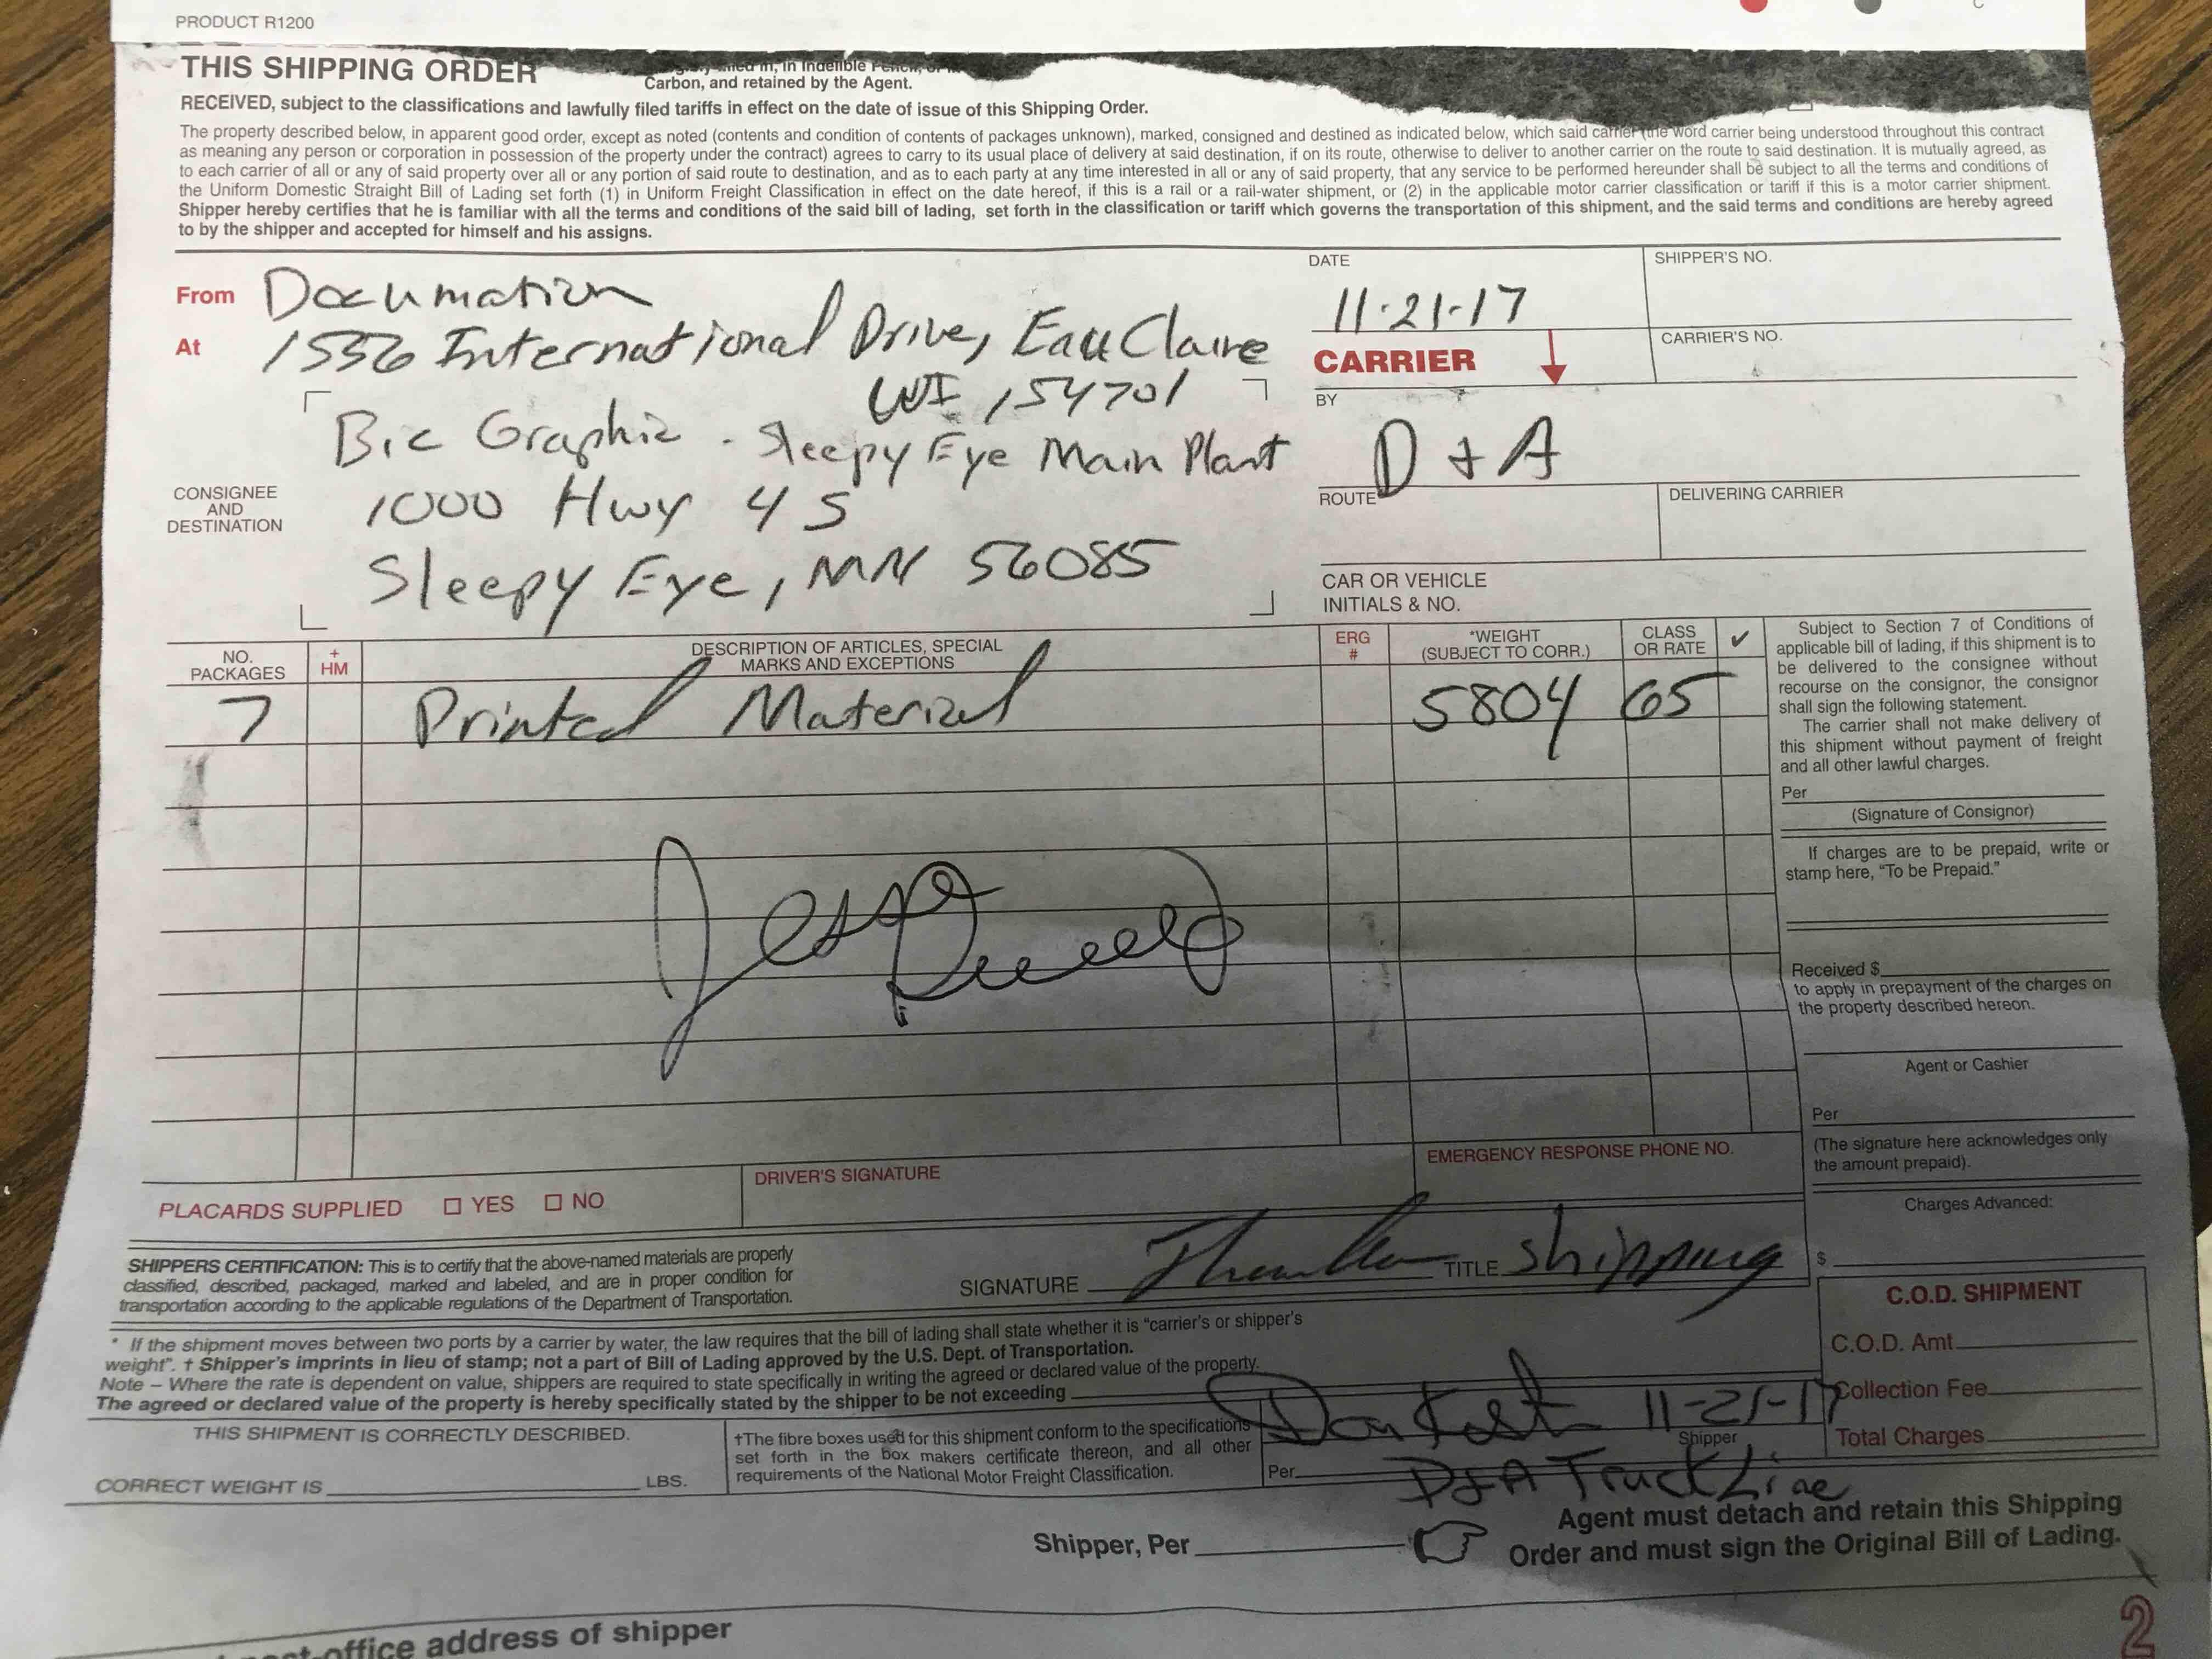 PRODUCT R1200
THIS SHIPPING ORDER
in, in Indelible Pencil, or in
Carbon, and retained by the Agent.
RECEIVED, subject to the classifications and lawfully filed tariffs in effect on the date of issue of this Shipping Order.
The property described below, in apparent good order, except as noted (contents and condition of contents of packages unknown), marked, consigned and destined as indicated below, which said carrier (the word carrier being understood throughout this contract
as meaning any person or corporation in possession of the property under the contract) agrees to carry to its usual place of delivery at said destination, if on its route, otherwise to deliver to another carrier on the route to said destination. It is mutually agreed, as
to each carrier of all or any of said property over all or any portion of said route to destination, and as to each party at any time interested in all or any of said property, that any service to be performed hereunder shall be subject to all the terms and conditions of
the Uniform Domestic Straight Bill of Lading set forth (1) in Uniform Freight Classification in effect on the date hereof, if this is a rail or a rail-water shipment, or (2) in the applicable motor carrier classification or tariff if this is a motor carrier shipment.
Shipper hereby certifies that he is familiar with all the terms and conditions of the said bill of lading, set forth in the classification or tariff which governs the transportation of this shipment, and the said terms and conditions are hereby agreed
to by the shipper and accepted for himself and his assigns.
From Documation
At 1556 International Drive, Eau Claire
WI, 54701
DATE
11-21-17
SHIPPER'S NO.
CARRIER
CARRIER'S NO.
BY
D + A
ROUTE
DELIVERING CARRIER
CAR OR VEHICLE
INITIALS & NO.
CONSIGNEE
AND
DESTINATION
Bic Graphic - Sleepy Eye Main Plant
1000 Hwy 4 S
Sleepy Eye, MN 56085
NO.
PACKAGES
+
HM
DESCRIPTION OF ARTICLES, SPECIAL
MARKS AND EXCEPTIONS
ERG
#
*WEIGHT
(SUBJECT TO CORR.)
CLASS
OR RATE
✔
7 Printed Material 5804 65
Subject to Section 7 of Conditions of
applicable bill of lading, if this shipment is to
be delivered to the consignee without
recourse on the consignor, the consignor
shall sign the following statement.
The carrier shall not make delivery of
this shipment without payment of freight
and all other lawful charges.
Per
(Signature of Consignor)
If charges are to be prepaid, write or
stamp here, "To be Prepaid."
Received $
to apply in prepayment of the charges on
the property described hereon.
Agent or Cashier
Per
(The signature here acknowledges only
the amount prepaid).
Charges Advanced:
$
PLACARDS SUPPLIED ☐ YES ☐ NO
DRIVER'S SIGNATURE
EMERGENCY RESPONSE PHONE NO.
SHIPPERS CERTIFICATION: This is to certify that the above-named materials are properly
classified, described, packaged, marked and labeled, and are in proper condition for
transportation according to the applicable regulations of the Department of Transportation.
SIGNATURE
TITLE Shipping
* If the shipment moves between two ports by a carrier by water, the law requires that the bill of lading shall state whether it is "carrier's or shipper's
weight". † Shipper's imprints in lieu of stamp; not a part of Bill of Lading approved by the U.S. Dept. of Transportation.
Note – Where the rate is dependent on value, shippers are required to state specifically in writing the agreed or declared value of the property.
The agreed or declared value of the property is hereby specifically stated by the shipper to be not exceeding
C.O.D. SHIPMENT
C.O.D. Amt.
Collection Fee
Total Charges
THIS SHIPMENT IS CORRECTLY DESCRIBED.
CORRECT WEIGHT IS LBS.
†The fibre boxes used for this shipment conform to the specifications
set forth in the box makers certificate thereon, and all other
requirements of the National Motor Freight Classification.
Don 11-21-17
Shipper
Per
D&A Truck Line
Shipper, Per
Agent must detach and retain this Shipping
Order and must sign the Original Bill of Lading.
2
office address of shipper